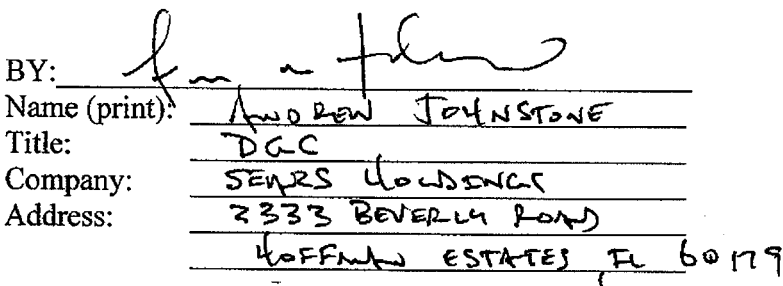 BY:
Name (print): ANDREW JOHNSTONE
Title: DGC
Company: SEARS HOLDINGS
Address: 3333 BEVERLY ROAD
HOFFMAN ESTATES IL 60179